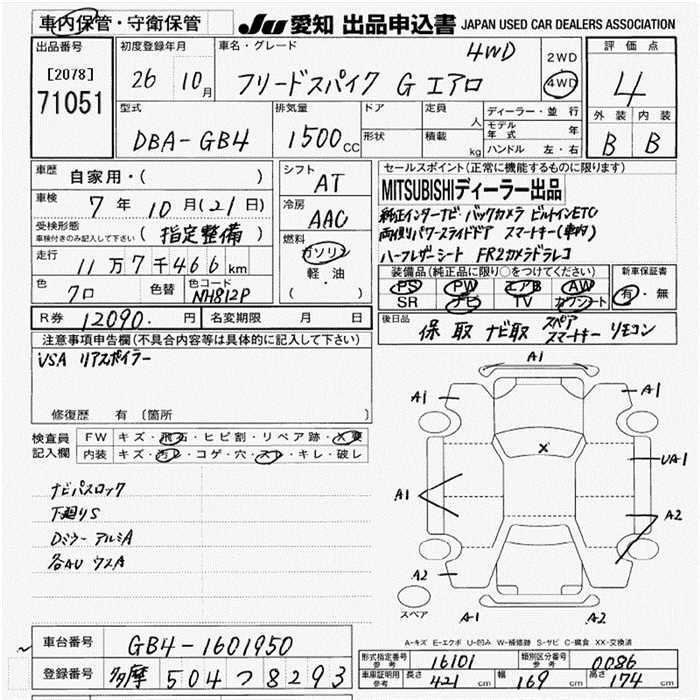 車内保管・守衛保管 JU 愛知 出品申込書 JAPAN USED CAR DEALERS ASSOCIATION
出品番号 [2078] 71051
初度登録年月 26 10月
車名・グレード フリードスパイク G エアロ 4WD
2WD 4WD
評価点 4
外装 内装
B B
型式 DBA-GB4
排気量 1500cc
ドア 形状
定員 人 積載 kg
ディーラー・並行
モデル年式 年
ハンドル 左・右
車歴 自家用・( )
車検 7年10月(21日)
受検形態 車検付きのみ記入して下さい (指定整備)
走行 11万7千466km
色 クロ 色替 色コード NH812P
シフト AT
冷房 AAC
燃料 ガソリン 軽・油 ( )
セールスポイント(正常に機能するものに限ります)
MITSUBISHIディーラー出品
純正インターナビ バックカメラ ビルトインETC
両側パワースライドドア スマートキー(車内)
ハーフレザーシート FR2カメラドラレコ
装備品(純正品に限り○をつけてください)
PS PW エアB AW
SR ナビ TV カワシート
新車保証書 有・無
R券 12090.円 名変期限 月 日
後日品 保 取 ナビ取 スペアスマートキー リモコン
注意事項申告欄(不具合内容等は具体的に記入して下さい)
VSA リアスポイラー
修復歴 有〔箇所 〕
検査員記入欄
FW キズ・飛石・ヒビ割・リペア跡・X要
内装 キズ・汚レ・コゲ・穴・スレ・キレ・破レ
ナビパスロック
下廻りS
Dミラー アルミA
各AU ウスA
A1
A1
A1
X
UA-1
A1
A2
A2
A-1
A2
スペア
A-キズ E-エクボ U-凹み W-補修跡 S-サビ C-腐食 XX-交換済
車台番号 GB4-1601950
登録番号 多摩 504 つ 8293
形式指定番号 参考 16101 類別区分番号 参考 0086
車庫証明用 参考 長さ 421cm 幅 169cm 高さ 174cm